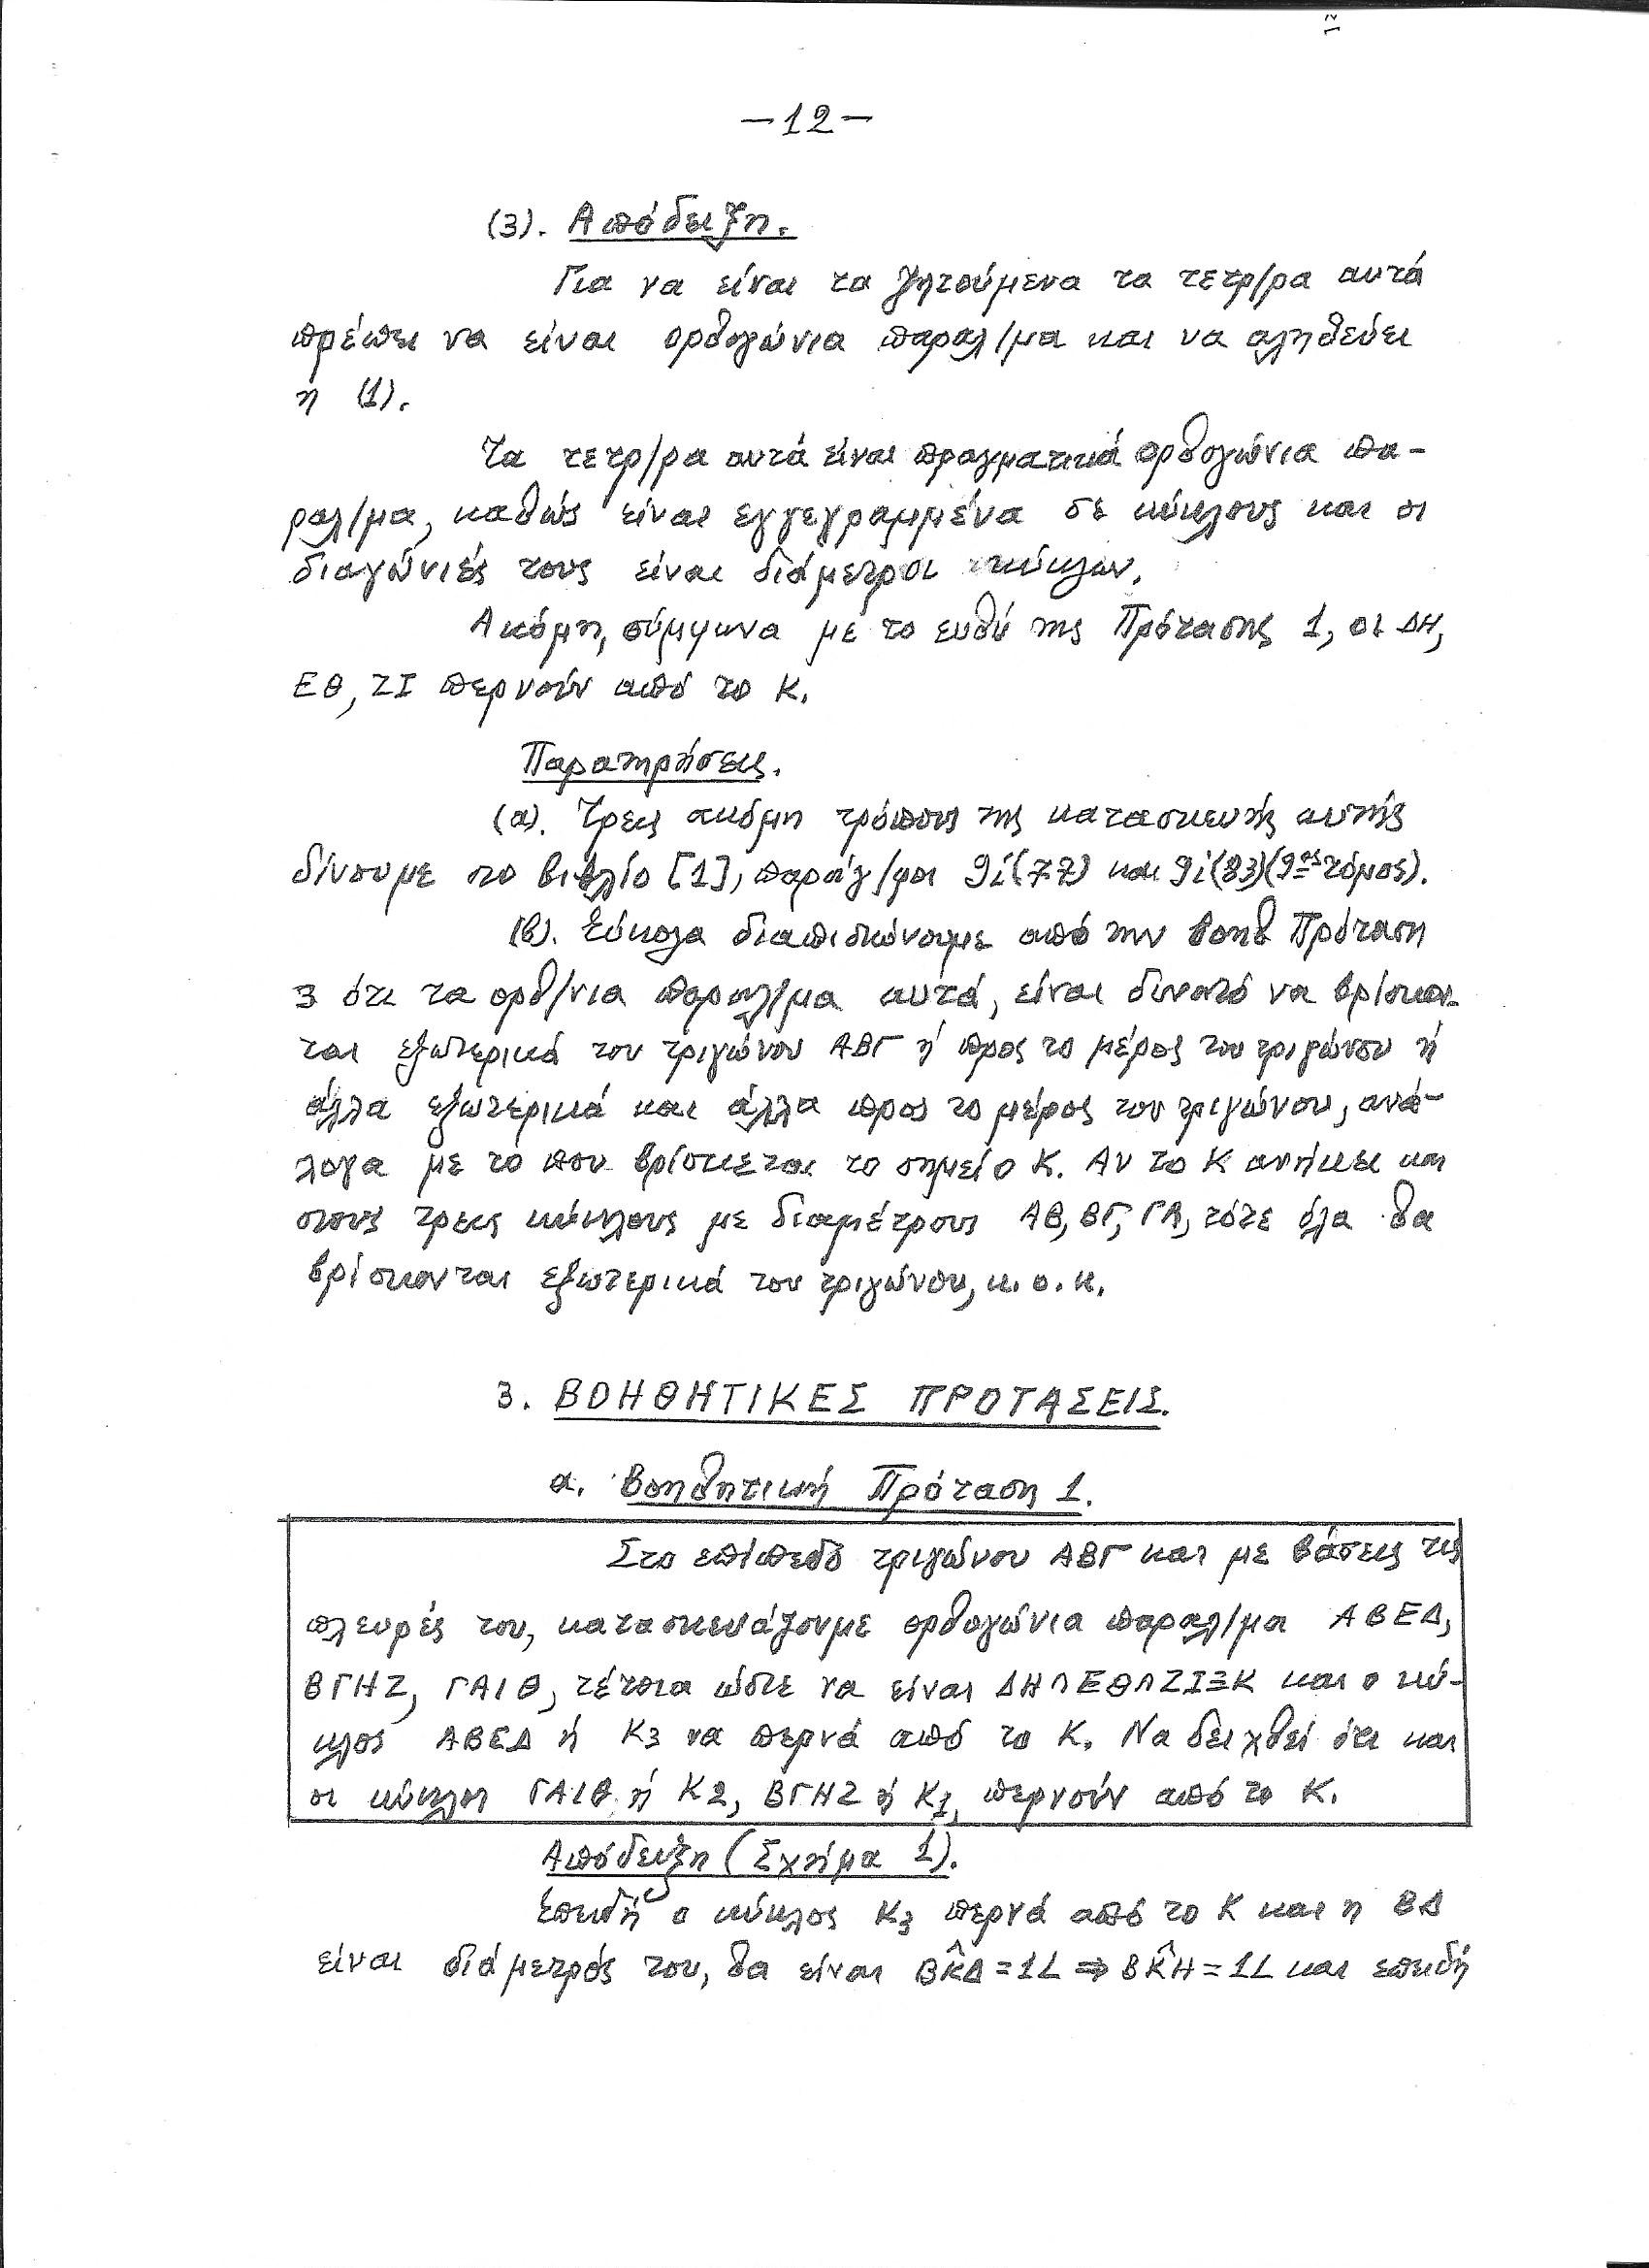 -12-
(3). Απόδειξη.
Για να είναι τα ζητούμενα τα τετρ/ρα αυτά
πρέπει να είναι ορθογώνια παραλ/μα και να αληθεύει
η (1).
Τα τετρ/ρα αυτά είναι πραγματικά ορθογώνια πα-
ραλ/μα, καθώς είναι εγγεγραμμένα σε κύκλους και οι
διαγώνιές τους είναι διάμετροι κύκλων.
Ακόμη, σύμφωνα με το ευθύ της Πρότασης 1, οι ΔΗ,
ΕΘ, ΖΙ περνούν από το Κ.
Παρατηρήσεις.
(α). Τρεις ακόμη τρόπους της κατασκευής αυτής
δίνουμε στο βιβλίο [1], παράγ/φοι 9i(77) και 9i(83)(9ος τόμος).
(β). Εύκολα διαπιστώνουμε από την βοηθ Πρόταση
3 ότι τα ορθ/νια παραλ/μα αυτά, είναι δυνατό να βρίσκον-
ται εξωτερικά του τριγώνου ΑΒΓ ή προς το μέρος του τριγώνου ή
άλλα εξωτερικά και άλλα προς το μέρος του τριγώνου, ανά-
λογα με το που βρίσκεται το σημείο Κ. Αν το Κ ανήκει και
στους τρεις κύκλους με διαμέτρους ΑΒ, ΒΓ, ΓΑ, τότε όλα θα
βρίσκονται εξωτερικά του τριγώνου, κ.ο.κ.
3. ΒΟΗΘΗΤΙΚΕΣ ΠΡΟΤΑΣΕΙΣ.
α. Βοηθητική Πρόταση 1.
Στο επίπεδο τριγώνου ΑΒΓ και με βάσεις τις
πλευρές του, κατασκευάζουμε ορθογώνια παραλ/μα ΑΒΕΔ,
ΒΓΗΖ, ΓΑΙΘ, τέτοια ώστε να είναι ΔΗΛΕΘΛΖΙΞΚ και ο κύ-
κλος ΑΒΕΔ ή Κ3 να περνά από το Κ. Να δειχθεί ότι και
οι κύκλοι ΓΑΙΘ ή Κ2, ΒΓΗΖ ή Κ1, περνούν από το Κ.
Απόδειξη (Σχήμα 1).
Επειδή ο κύκλος Κ3 περνά από το Κ και η ΒΔ
είναι διάμετρός του, θα είναι ΒK̂Δ=1L ⇒ ΒK̂Η=1L και επειδή